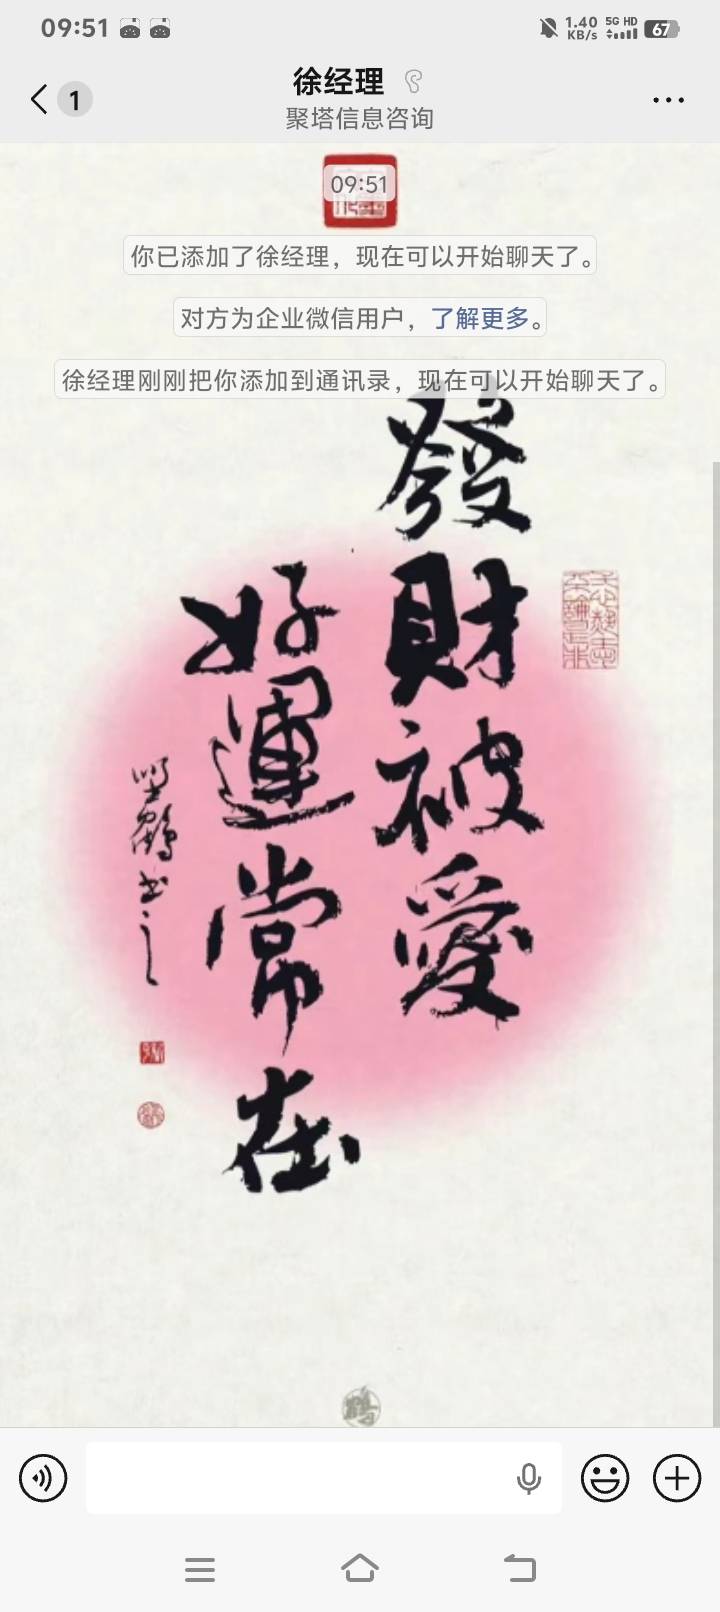 09:51
1.40 KB/s
5G HD
67
1
徐经理
聚塔信息咨询
09:51
你已添加了徐经理，现在可以开始聊天了。
对方为企业微信用户，了解更多。
徐经理刚刚把你添加到通讯录，现在可以开始聊天了。
發財被愛
好運常在